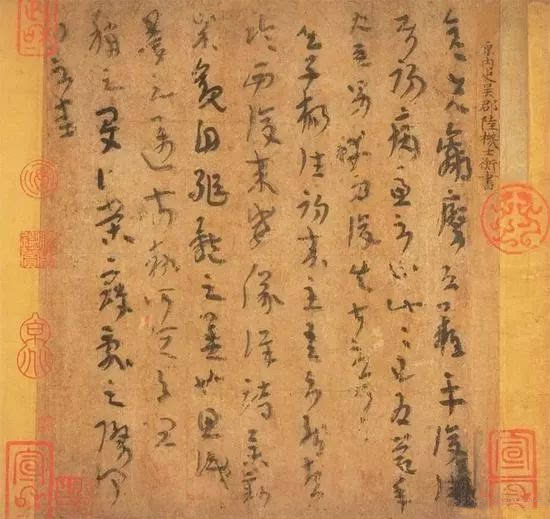 原內史吳郡陸機士衡書
彥先羸瘵恐難平復往
屬初病慮不止此此已為慶承
使唯男幸為復失前憂耳
吳子楊往初來主吾不能盡
臨西復來威儀詳跱舉動
成觀自軀體之美也思識
量之邁前執所恒有宜
稱之夏伯榮寇亂之際聞
問不悉